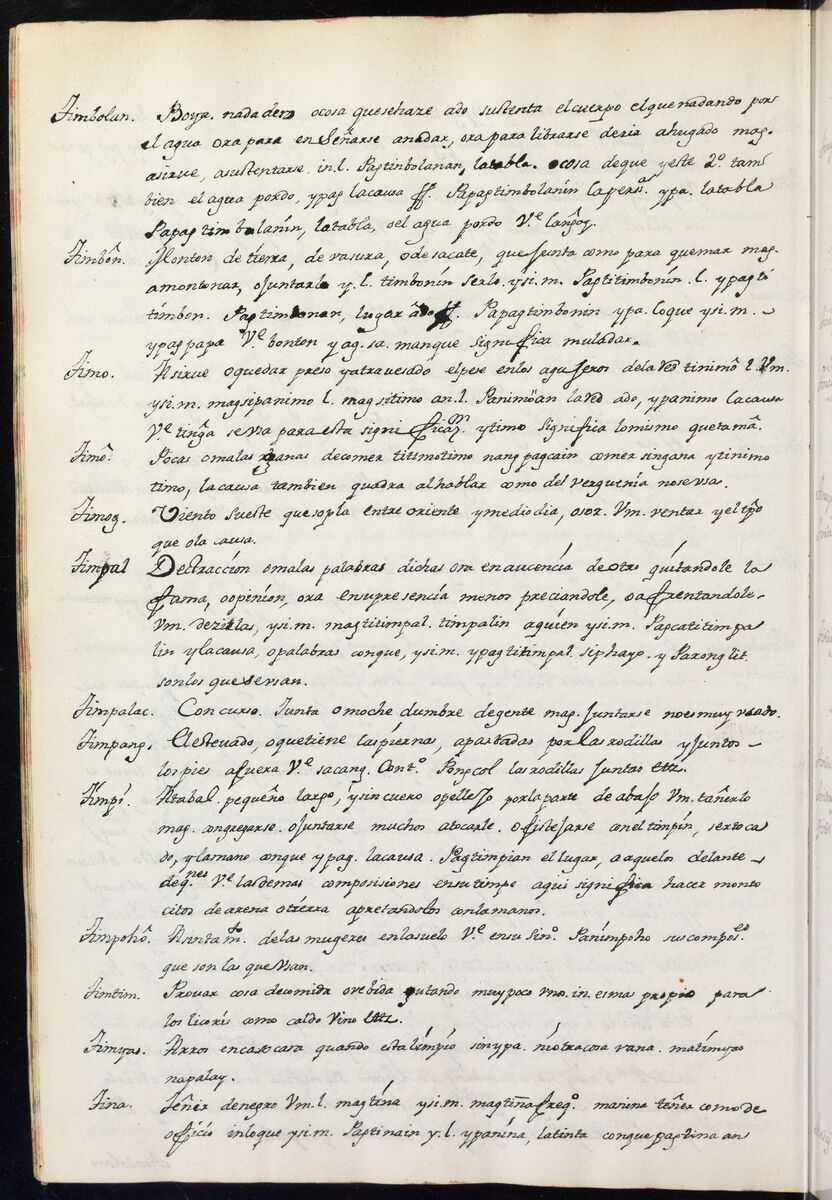 Timbolan. Boya. nadadero ocosa quesehaze ado sustenta elcuerpo elquenadando por
el agua ora para enSeñarse anadar, ora para librarse deria ahugado mag.
asirue, asustentarse. in.l. Pagtinbolanan, latabla. ocosa deque yeste 2º. tam
bien el agua pordo, ypag lacausa ff. Papagtimbolanin lapersª. ypa. latabla
Papagtimbolanin, latabla, oel agua pordo V.e langoy.
Timbôn. Monton de tierra, de vasura, odesacate, queJunta como para quemar mag.
amontonar, oJuntarlo y.l. timbonin serlo. ysi.m. Pagtitimbonin .l. ypagti
timbon. Pagtimbonan, lugar âdo ff. Papagtimbonin ypa. loque ysi.m. –
ypagpapa V.e bonton yag.sa. manque significa muladar.
Timo. Asirue oquedar preso yatrauesado elpese enlos aguJeros dela red tinimô l. Vm.
ysi.m. magsipanimo l. magsitimo an.l. Panimöan lared ado, ypanimo lacausa
V.e tinga sevsa para esta significaⁿ. ytimo significa lomismo quetamâ.
Timô. Pocas omalas ganas decomer titimotimo nang pagcain comer singana ytinimo
timo, lacausa tambien quadra alhablar como del verguenia nosevsa.
Timog. Viento sueste quesopla entre oriente ymediodia, osor. Vm. ventar yeltpo
que ola causa.
Timpal Detraccion omalas palabras dichas ora enaucencia deotro quitandole la
fama, oopinion, ora ensupresencia menos preciandole, oafrentandole.
Vm. dezirlas, ysi.m. magtitimpal. timpalin aquien ysi.m. Pagcatitimpa
lin ylacausa, opalabras conque, ysi.m. ypagtitimpal. siphayo. y Paronglit
sonlos quesevsan.
Timpalac. Concurso. Junta omoche dumbre degente mag. Juntarse noesmuy vsado.
Timpang. Elesteuado, oquetiene laspiernas, apartadas porlas rodillas yJuntos –
lospies afuera V.e sacang. Contº. Pongcol las rodillas Juntas ettz.
Timpi. Atabal. pequeño largo, ysincuero opelleJo porlaparte de abaJo Vm. tañerlo
mag. congregarse. oJuntarse muchos atocarle. ofisteJarse conel timpin, sertoca
do, ylamano conque ypag. lacausa. Pagtimpian el lugar, oaquelos delante –
deq.nes V.e lasdemas composisiones ensutimpo aqui significa hacer monto
citos de arena otierra apretandolos conlamanos.
Timpohô. Asintamto. delas mugeres enlosuelo V.e ensu Sinº. Panimpoho suscompos.es
que son las que Vsan.
Timtim. Prouar cosa decomida ovebida gutando muypoco vno. in. esma propio para
loslicorës como caldo Vino ettz.
Timyas. Arros encaxcara quando estalimpio sinypa. niotracosa vana. matimyas
napalay.
Tina. Teñir denegro Vm.l. magtina ysi.m. magtiña freqº. manina teñer comode
officio inloque ysi.m. Pagtinain y.l. ypanina, latinta conque pagtina an